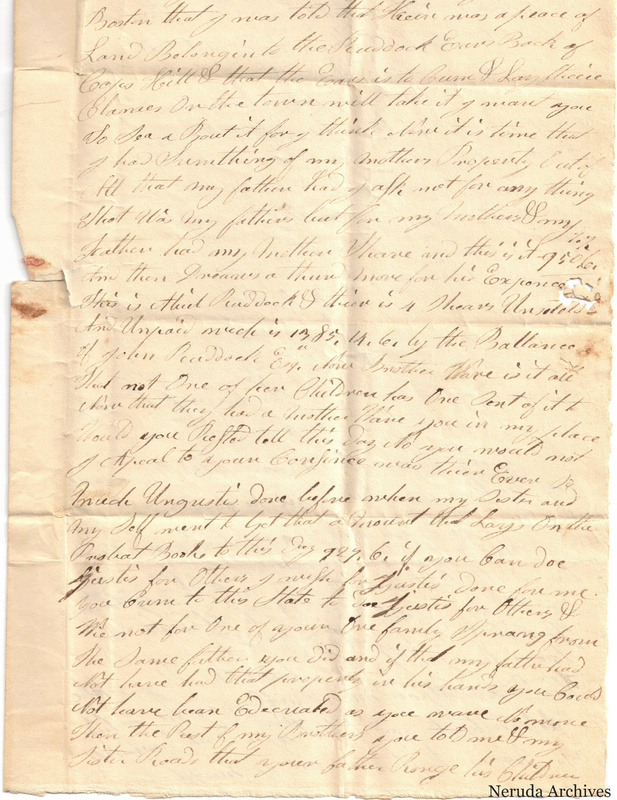 Boston that y was told that their was a peace of
Land Belongin to the Ruddock Eairs Back of
Cops Hill & that the Eairs is to Cum & Lay their
Claimes Or the town will take it y want you
to Sea a Bout it for y think Now it is time that
y had Sumthing of my mothers Property Out of
All that my father had y ask not for any thing
that Was my fathers but for my Mothers & my
father had my Mother Sheare and this is it 950
And then Dreawes a third more for his Expence
this is Abiel Ruddock & thier is 4 Shears Untold
And Unpaid wich is 1385.14.6. by the Ballance
of John Ruddock Esqr. Now Brother Whare is it all
that not One of her Children has One Sent of it to
Show that they had a Mother Ware you in my place
Would you Rested till this Day No you would not
y Apeal to your Consince was thier Ever So
much Ungustis done before when my Sister and
my Self went to Get that amount that Lays On the
Probat Books to this Day 929.6. if you Can doe
Gustis for Others y wish for Gustis Done for me.
you Cum to this State to Doe Gustis for Others &
Whe not for One of your One family Sprang from
the Same father you Did and if that my father had
Not have had that property in his hands you Could
Not have bean Edecreated as you ware No more
than the Rest of my Brothers you told me & my
Sister Roads that your father Ronge his Children
Neruda Archives